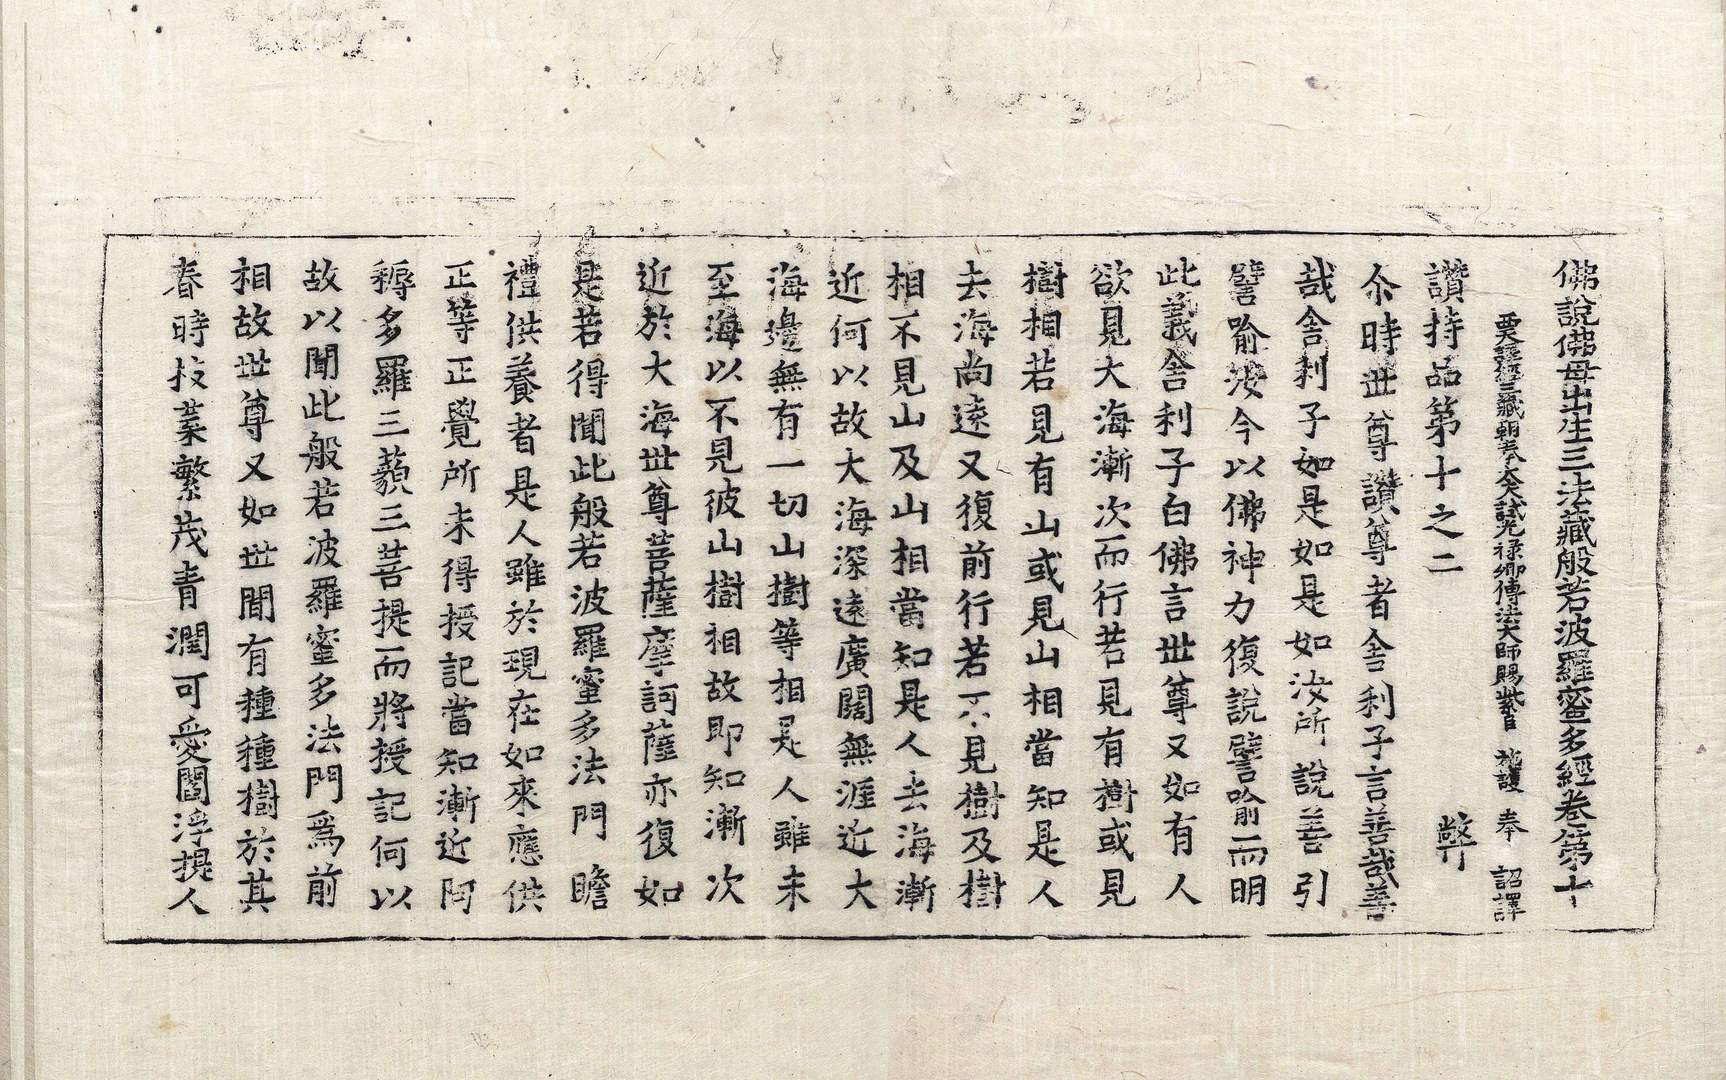 佛說佛母出生三法藏般若波羅蜜多經卷第十
西天譯經三藏朝奉大夫試光祿卿傳法大師賜紫臣 施護 奉 詔譯
讚持品第十之二
尒時世尊讚尊者舍利子言善哉善
哉舍利子如是如是如汝所說善引
譬喻汝今以佛神力復說譬喻而明
此義舍利子白佛言世尊又如有人
欲見大海漸次而行若見有樹或見
樹相若見有山或見山相當知是人
去海尚遠又復前行若不見樹及樹
相不見山及山相當知是人去海漸
近何以故大海深遠廣闊無涯近大
海邊無有一切山樹等相是人雖未
至海以不見彼山樹相故即知漸次
近於大海世尊菩薩摩訶薩亦復如
是若得聞此般若波羅蜜多法門瞻
禮供養者是人雖於現在如來應供
正等正覺所未得授記當知漸近阿
耨多羅三藐三菩提而將授記何以
故以聞此般若波羅蜜多法門爲前
相故世尊又如世間有種種樹於其
春時枝葉繁茂青潤可愛閻浮提人